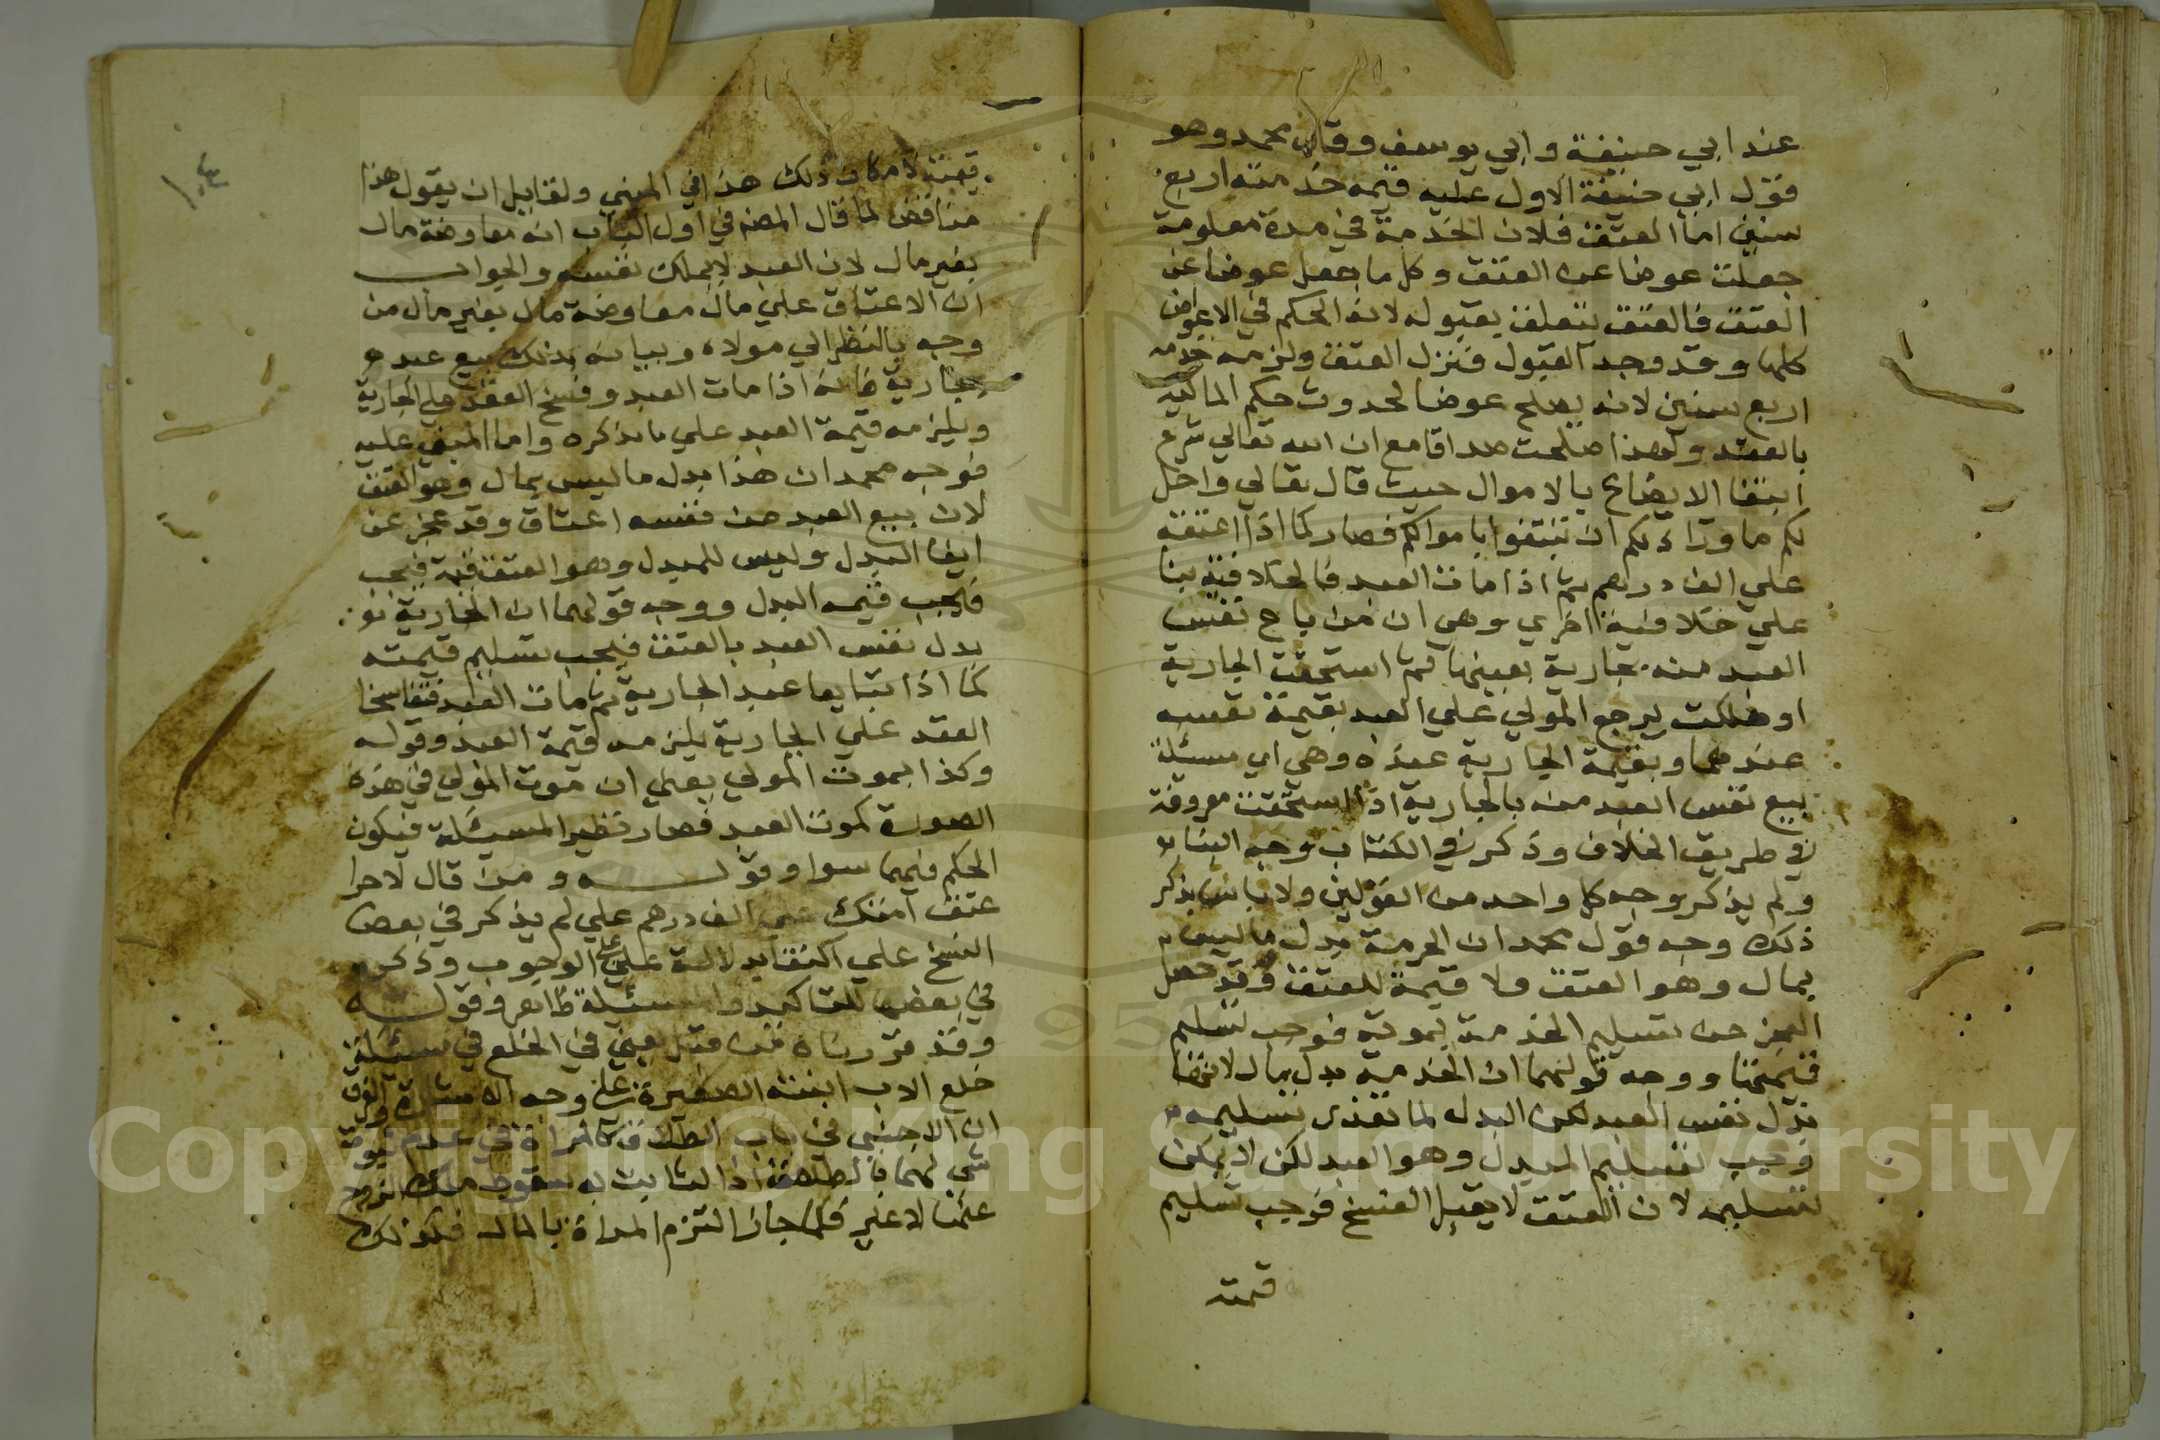 عند ابي حنيفة وابي يوسف وقال محمد وهو
قول ابي حنيفة الاول عليه قيمه خدمته اربع
سنين اما العتق فلان الخدمة في مدة معلومة
جعلت عوضا عن العتق وكل ما جعل عوضا عن
العتق فالعتق يتعلق بقبوله لانه الحكم في الاعواض
كلها وقد وجد القبول فنزل العتق ولزمه خدمة
اربع سنين لانه يصلح عوضا لحدوث حكم المالية
بالعقد ولهذا صلحت صداقا مع ان الله تعالي شرع
ابتغا الابضاع بالاموال حيث قال تعالي واحل
لكم ما ورآ ذلكم ان تبتغوا باموالكم فصار كما اذا اعتقه
علي الف درهم ثم اذا مات العبد فالخلافية بنا
علي خلافية اخري وهي ان من باع نفس
العبد منه بجارية بعينها ثم استحقت الجارية
او هلكت يرجع المولي علي العبد بقيمة نفسه
عندهما وبقيمة الجارية عنده وهي اي مسئلة
بيع نفس العبد منه بالجارية اذا استحقت معروفة
في طريق الخلاف وذكر في الكتاب وجه البنا
ولم يذكر وجه كل واحد من القولين ولا باس بذكر
ذلك وجه قول محمد ان الخدمة بدل ما ليس
بمال وهو العتق ولا قيمة للعتق وقد حصل
العجز عن تسليم الخدمة بموته فوجب تسليم
قيمتها ووجه قولهما ان الخدمة بدل مال لانها
بدل نفس العبد لكن البدل لما تعذر تسليمه
وجب تسليم المبدل وهو العبد لكن لا يمكن
تسليمه لان العتق لا يقبل الفسخ فوجب تسليم
قيمته
١٠٤
قيمته لامكان ذلك هذا في المبني ولقايل ان يقول هذا
مناقض لما قال المصنف في اول الباب انه معاوضة مال
بغير مال لان العبد لا يملك نفسه والجواب
ان الاعتاق علي مال معاوضة مال بغير مال من
وجه بالنظر الي مولاه وبيانه بذلك بيع عبد
بجارية فانه اذا مات العبد وفسخ العقد علي الجارية
ويلزمه قيمة العبد علي ما يذكره واما المبني عليه
فوجه محمد ان هذا بدل ما ليس بمال وهو العتق
لان بيع العبد من نفسه اعتاق وقد عجز عن
ايفا البدل وليس للمبدل وهو العتق قيمة فيجب
فيجب قيمه البدل ووجه قولهما ان الجارية
بدل نفس العبد بالعتق فيجب تسليم قيمته
كما اذا تبايعا عبد الجارية ثم مات العبد فتفاسخا
العقد علي الجارية يلزمه قيمة العبد وقوله
وكذا بموت المولي يعني ان موت المولي في هذه
الصورة كموت العبد فصار نظير المسئلة فيكون
الحكم فيهما سوا وقولــــه ومن قال لاخر
اعتق امتك علي الف درهم علي لم يذكر في بعض
النسخ علي اكتفا بدلالة علي علي الوجوب وذكر
في بعضها للتاكيد والمسئلة ظاهر وقولــــه
وقد قررناه من قبل يعني في الخلع في مسئلة
خلع الاب ابنته الصغيرة علي وجه الاشارة والفرق
ان الاجنبي في باب الطلاق كالمراة في عدم ثبوت
شي لهما بالطلاق اذ الثابت به سقوط ملك الزوج
عنها لا غير فكما جاز التزام المراة بالمال فكذلك
Copyright © King Saud University